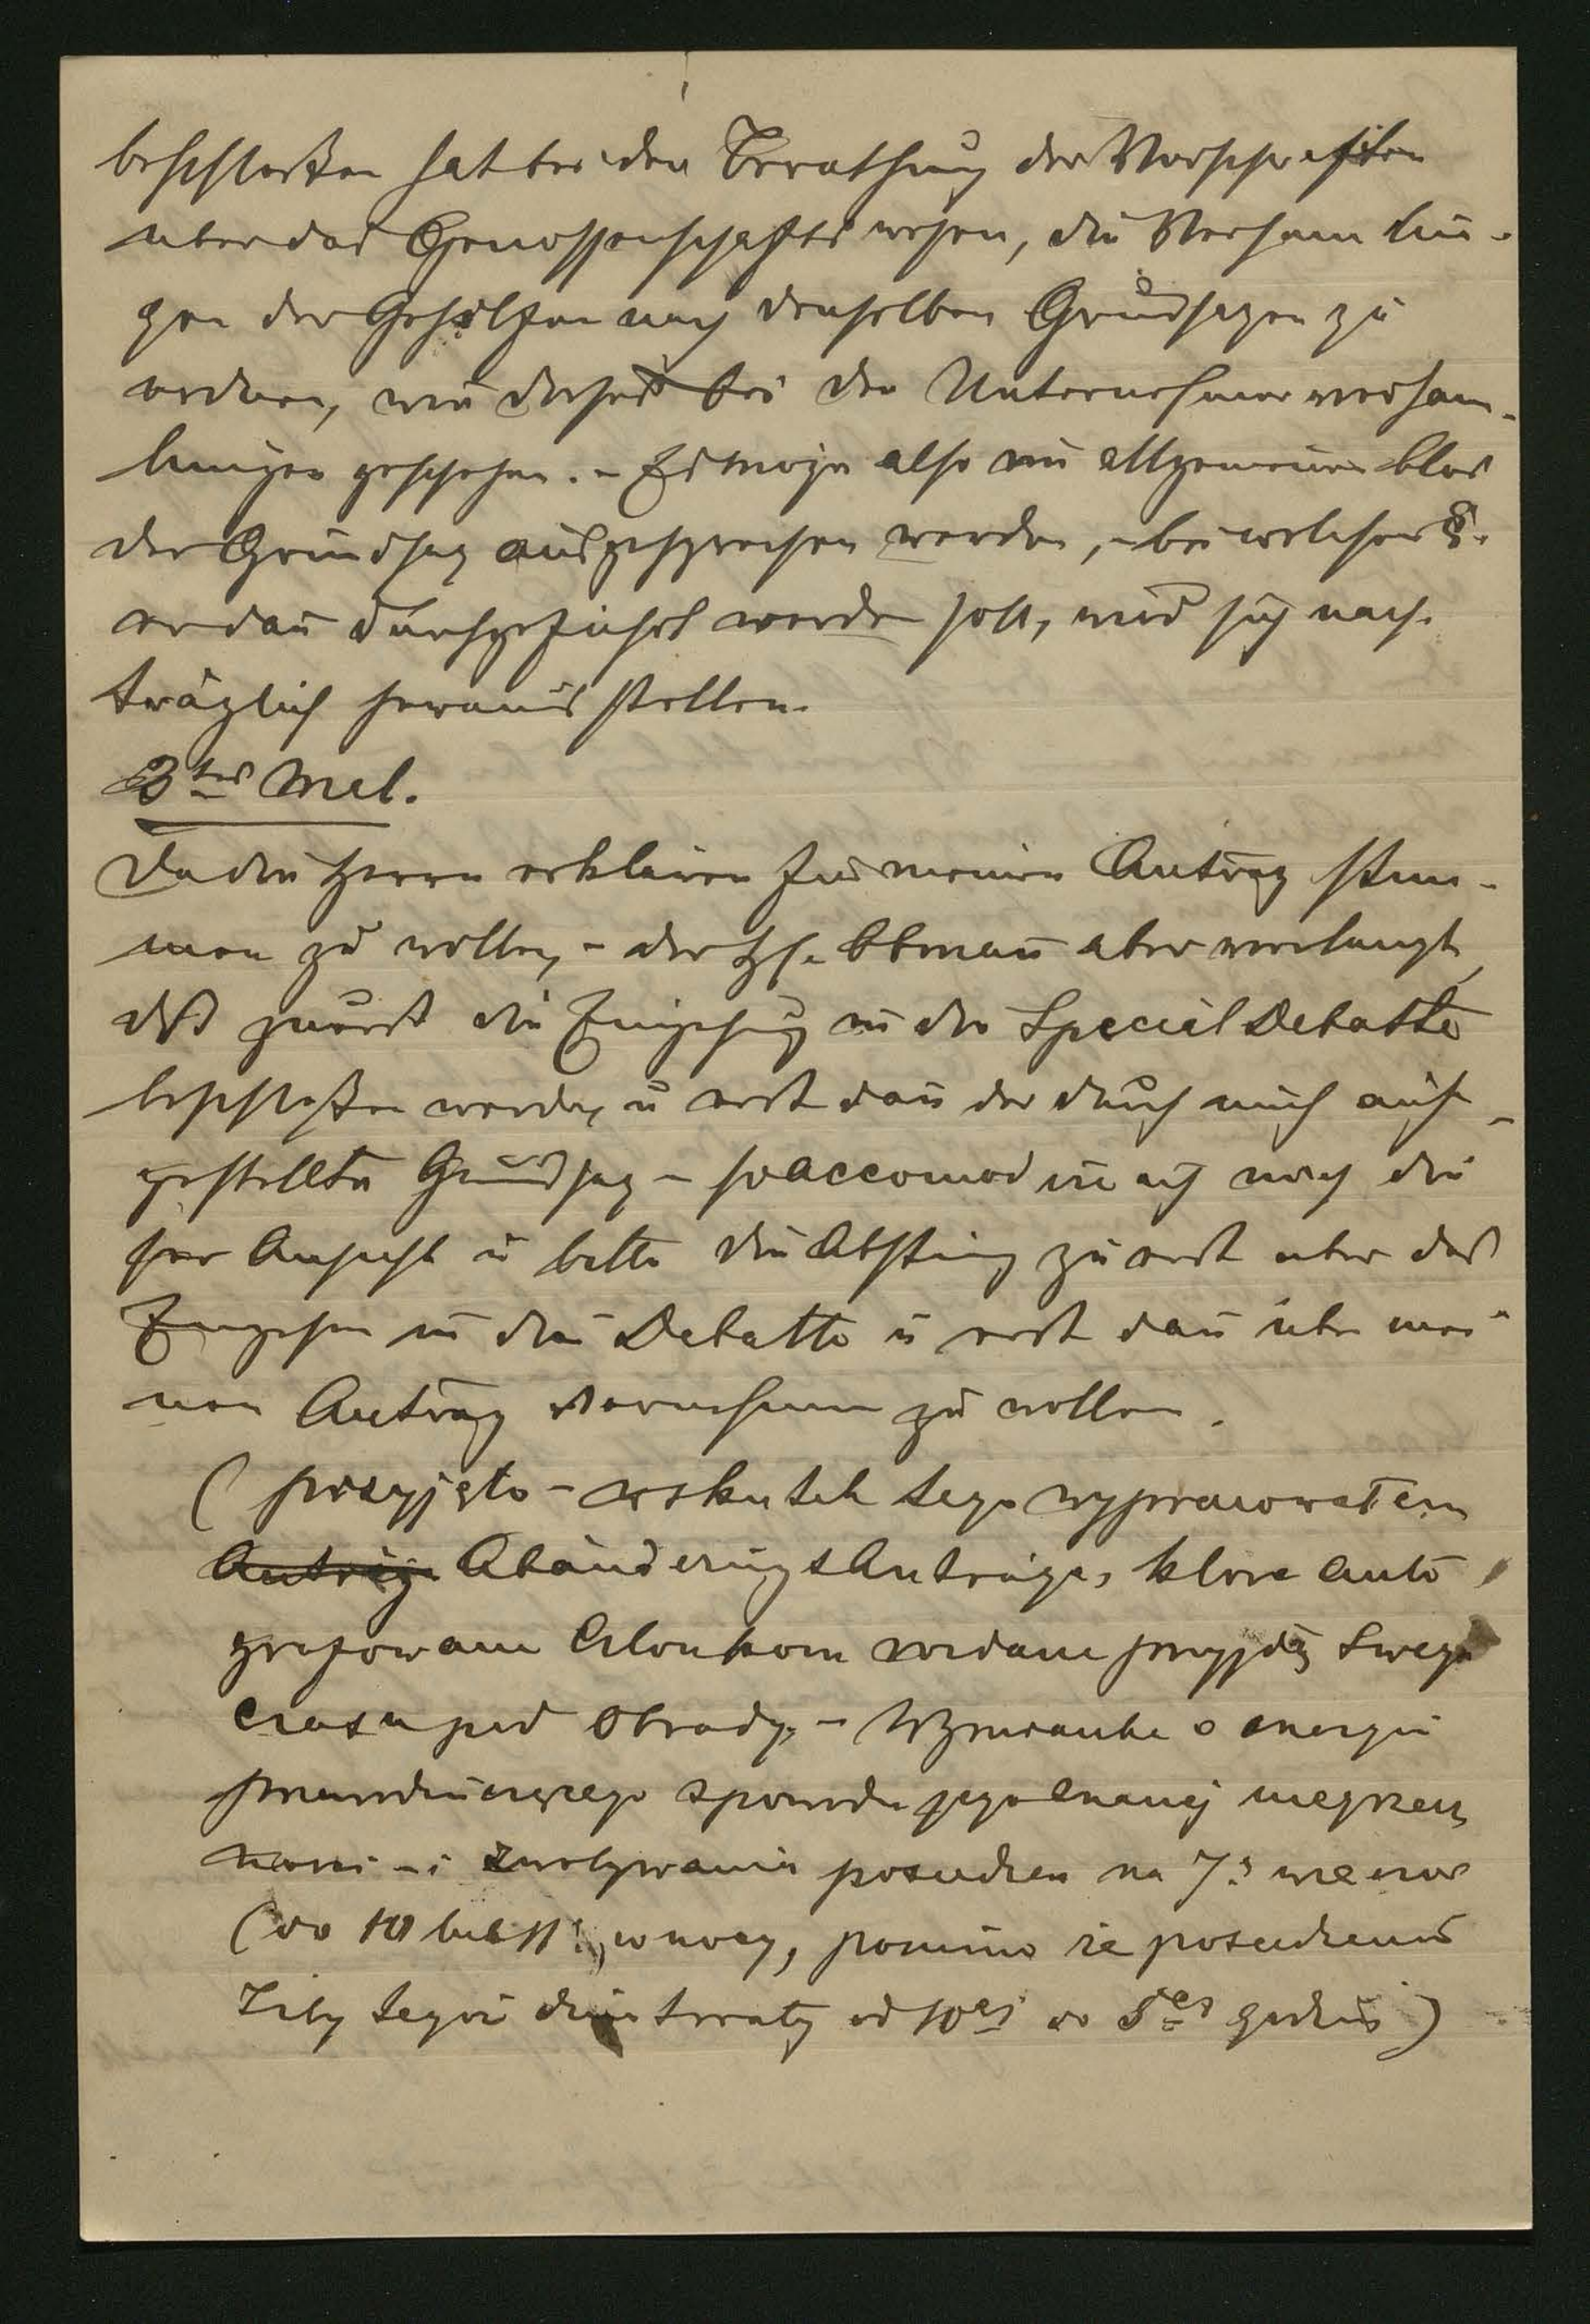 beschloßen hat bei der Berathung der Vorschriften
uber das Genossenschaftswesen, die Versamlun-
gen der Gehilfen nach denselben Grundsazen zu
ordnen, wie dieses bei den Unternehmerversam-
lungen geschehen. - Es möge also im allgemeinen blos
der Grundsaz ausgesprochen werden, - bei welchem §.
er dan durchgeführt werden soll, wird sich nach-
träglich herausstellen.
3tes Mal.
Da die Herren erklären fur meinen Antrag stim-
men zu wollen, - der H. Obman aber verlangt,
daß zuerst die Eingehung in die Special Debatte
beschloßen werde, u erst dan der durch mich auf-
gestellte Grundsaz - so accomodire ich mich die-
ser Ansicht u bitte die Abstimg zuerst uber das
Eingehen in die Debatte u erst dan über mei-
nen Antrag vornehmen zu wollen.
( przyjęto - wskutek tego wypracowałem
Anträge Abänderungs Anträge, które auto
grafowane członkom rozdane przyjdą swego
czasu pod obrady. - Wzmianka o energii
przewodniczącego spowodu jego znanej
i zwoływania posiedzeń na 7ą wieczor
(do 10 lub 11 w nocy, pomimo że posiedzenia
Izby tegoż dnia trwały od 10ej do 5ej godziny)